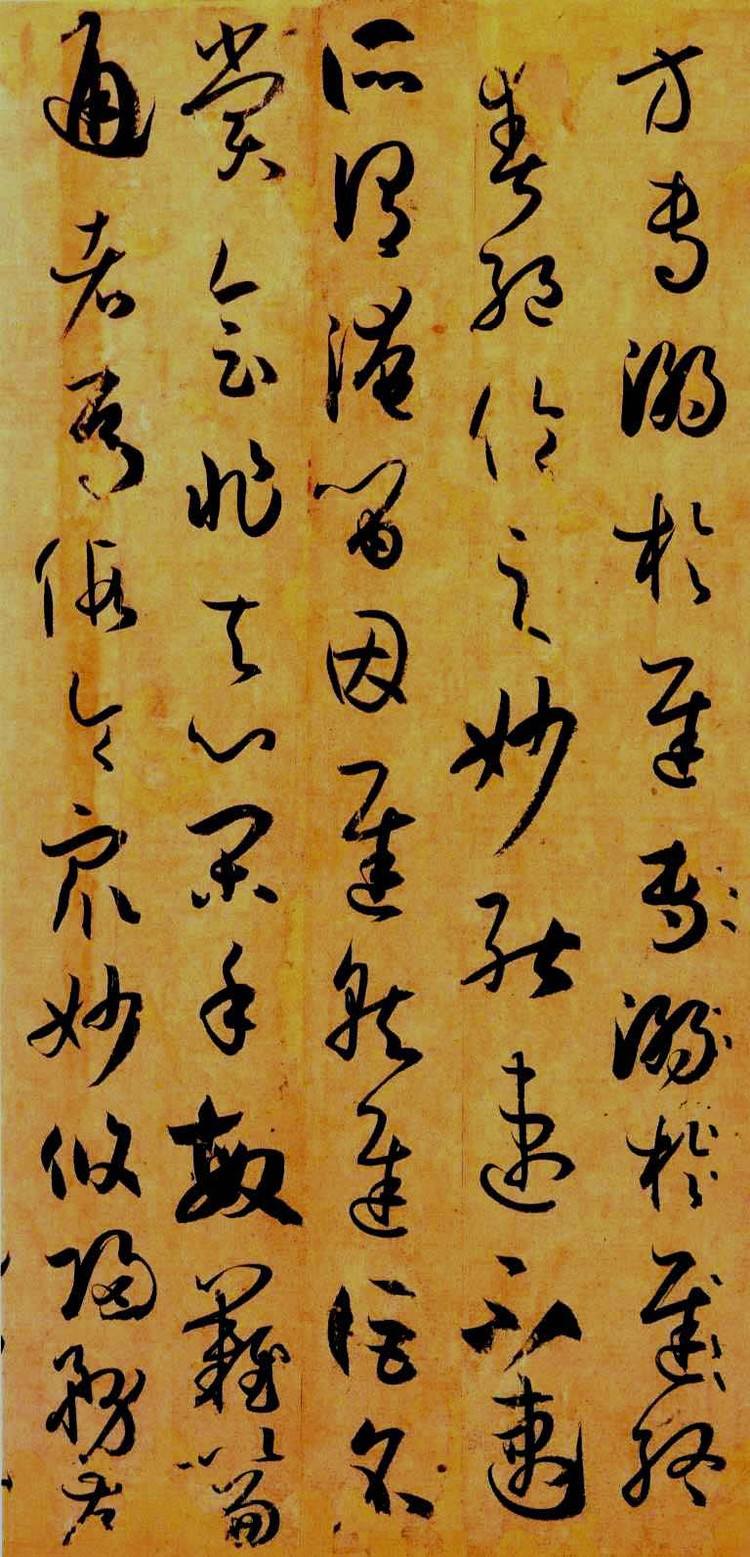 方專溺於遲專溺於遲終
爽絕倫之妙能速不速
所謂淹留因遲就遲詎名
賞會非夫心閑手敏難以兼
通者焉假令眾妙攸歸務存